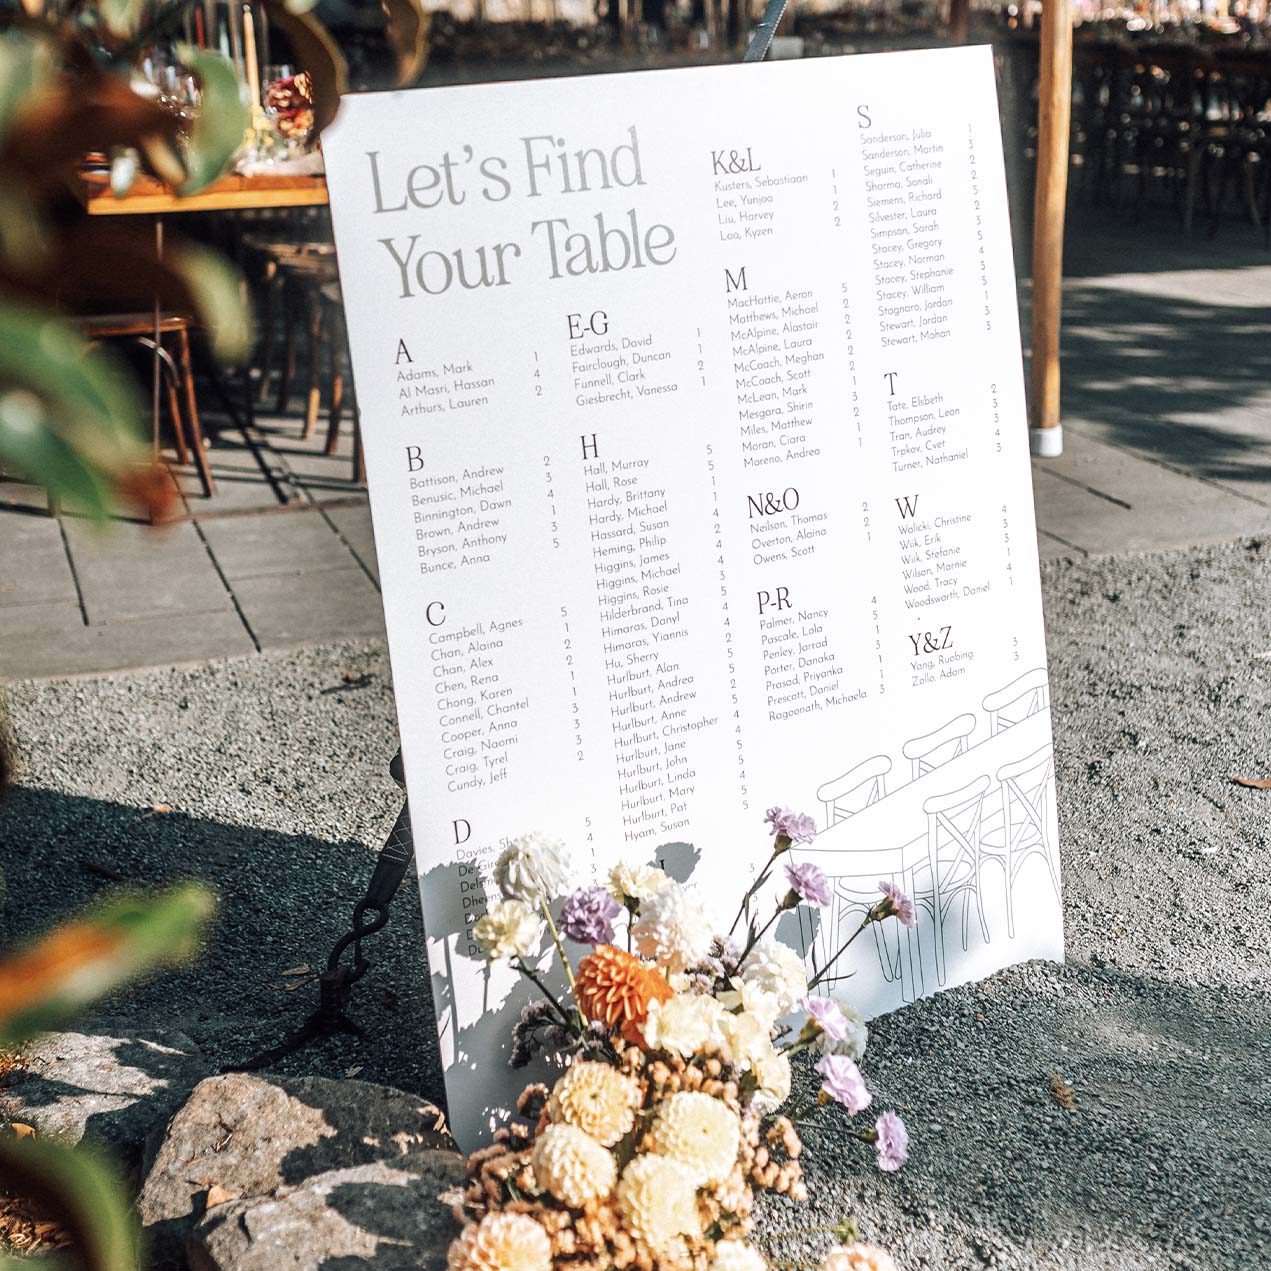 Let's Find
Your Table
A
Adams, Mark 1
Al Masri, Hassan 4
Arthurs, Lauren 2
B
Battison, Andrew 2
Benusic, Michael 3
Binnington, Dawn 4
Brown, Andrew 1
Bryson, Anthony 3
Bunce, Anna 5
C
Campbell, Agnes 5
Chan, Alaina 1
Chan, Alex 2
Chen, Rena 2
Chong, Karen 1
Connell, Chantel 1
Cooper, Anna 3
Craig, Naomi 3
Craig, Tyrel 3
Cundy, Jeff 2
D
Davies, 5
De 4
1
3
E-G
Edwards, David 1
Fairclough, Duncan 1
Funnell, Clark 2
Giesbrecht, Vanessa 1
H
Hall, Murray 5
Hall, Rose 5
Hardy, Brittany 1
Hardy, Michael 1
Hassard, Susan 4
Heming, Philip 2
Higgins, James 4
Higgins, Michael 4
Higgins, Rosie 3
Hilderbrand, Tina 5
Himaras, Danyl 4
Himaras, Yiannis 4
Hu, Sherry 2
Hurlburt, Alan 5
Hurlburt, Andrea 5
Hurlburt, Andrew 2
Hurlburt, Anne 5
Hurlburt, Christopher 4
Hurlburt, Jane 4
Hurlburt, John 5
Hurlburt, Linda 5
Hurlburt, Mary 4
Hurlburt, Pat 5
Hyam, Susan 5
3
K&L
Kusters, Sebastiaan 1
Lee, Yunjoo 1
Liu, Harvey 2
Loo, Kyzen 2
M
MacHattie, Aeron 5
Matthews, Michael 2
McAlpine, Alastair 2
McAlpine, Laura 2
McCoach, Meghan 2
McCoach, Scott 2
McLean, Mark 1
Mesgara, Shirin 3
Miles, Matthew 2
Moran, Ciara 1
Moreno, Andrea 1
N&O
Neilson, Thomas 2
Overton, Alaina 2
Owens, Scott 1
P-R
Palmer, Nancy 4
Pascale, Lola 5
Penley, Jarrad 3
Porter, Danaka 1
Prasad, Priyanka 1
Prescott, Daniel 1
Ragoonath, Michaela 3
S
Sanderson, Julia 1
Sanderson, Martin 3
Seguin, Catherine 2
Sharma, Sonali 2
Siemens, Richard 5
Silvester, Laura 2
Simpson, Sarah 3
Stacey, Gregory 5
Stacey, Norman 4
Stacey, Stephanie 3
Stacey, William 5
Stagnaro, Jordan 1
Stewart, Jordan 3
Stewart, Mohan 3
T
Tate, Elsbeth 2
Thompson, Leon 3
Tran, Audrey 3
Trpkov, Cvet 4
Turner, Nathaniel 3
W
Walicki, Christine 4
Wiik, Erik 3
Wiik, Stefanie 3
Wilson, Marnie 1
Wood, Tracy 4
Woodsworth, Daniel 1
Y&Z
Yang, Ruobing 3
Zollo, Adam 3